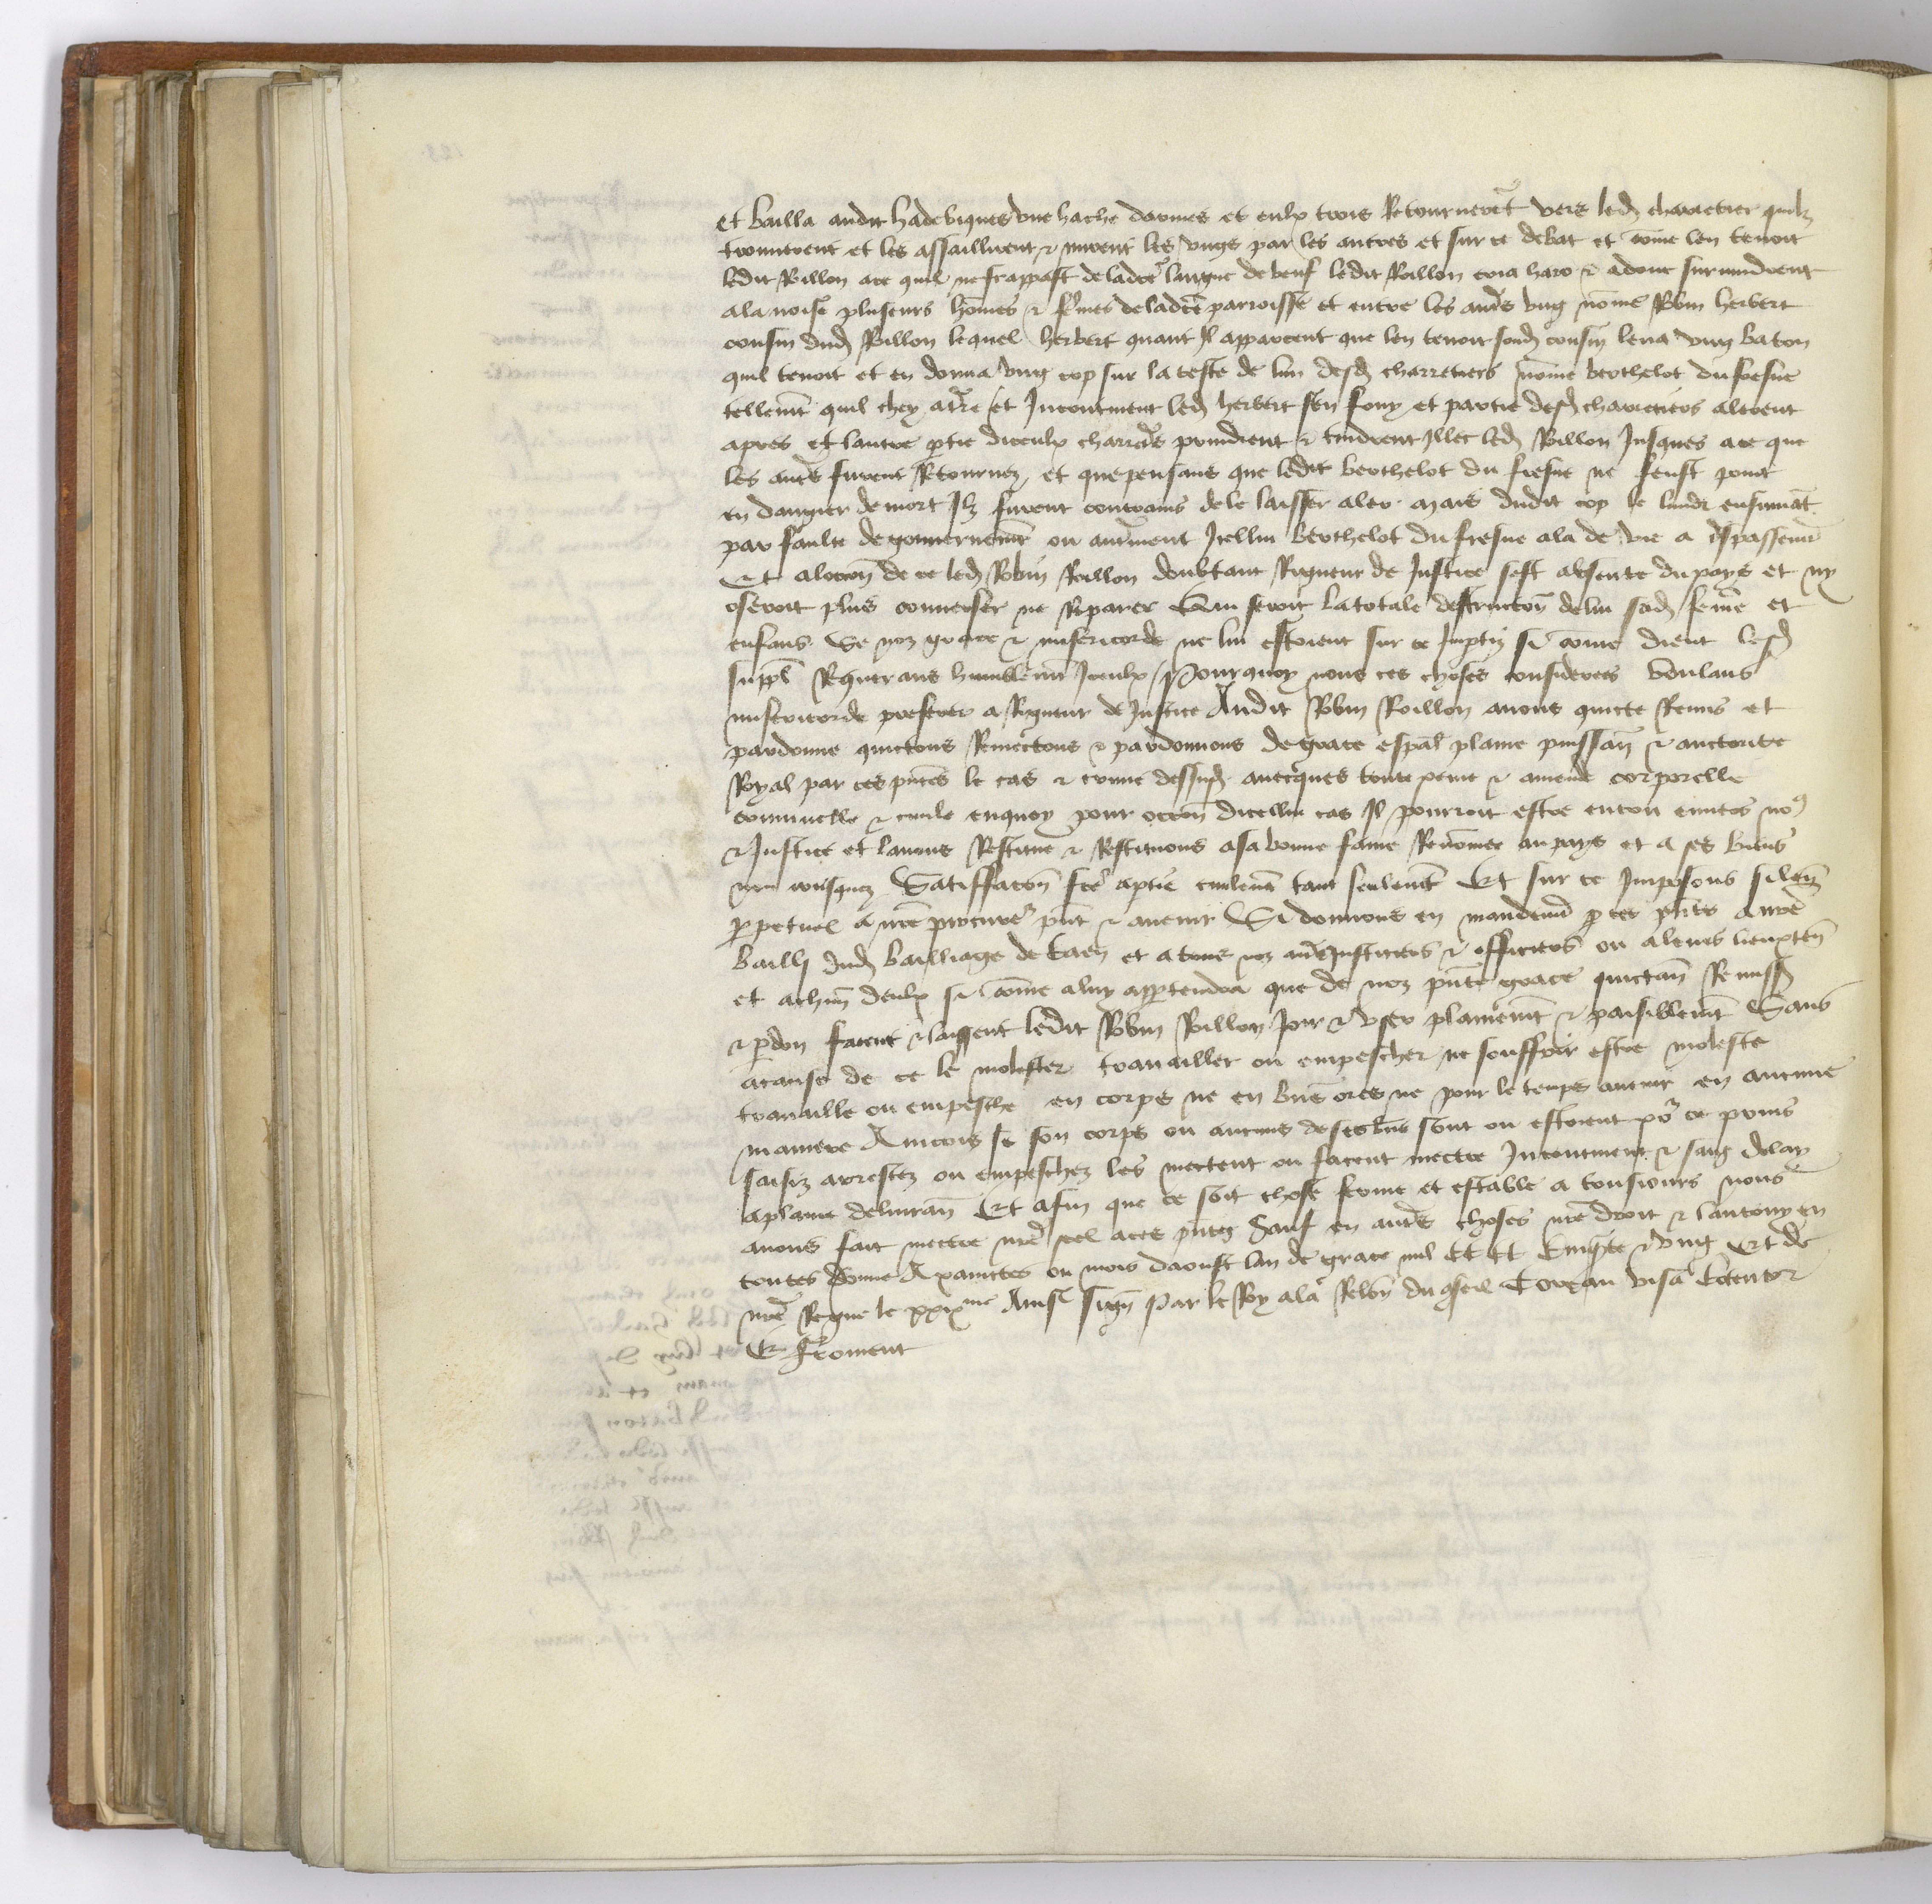 et bailla audit hadeviques une hache darmes et eulx trois Retournerēt vers led charretier quilz
trouverent et les assaillirent & nuirent les ungs par les autres et sur ce debat et cōme len tenoit
ledit Roillon ace quil ne frappast de ladcē langue de beuf ledit Roillon cria haro & adonc survindrent
ala noise pluseurs hōmes & fēmes de ladcē parroisse et entre les autrēs ung nōmé Robin herbert
cousin dud Roillon lequel herbert quant Il apparceut que len tenoit soud cousin leva ung baton
quil tenoit et en donna ung cop sur la teste de lun desd charretiers nōmé berthelot du fresne
tellemt quil chey aterre et Incontinent led herbert sen fouy et partie desd charretiers alerent
apres et lautre ptie diceulx charretiers prindrent & tindrent Illec led Roillon Jusques ace que
les autrēs furent Retournez et que pensans que ledit berthelot du fresne ne feust point
en dangier de mort Ilz furent contrains de le laisser aler mais dudit cop le lundi ensuivāt
par faulte de gouvernemēt ou autrement Icellui berthelot du fresne ala de vie a trespassemt
Et aloccōn de ce led Robin Roillon doubtant Rigueur de Justice sest absente du pays et ny
oseroit plus converser ne Reparer Qui seroit la totale destructōn de lui sad femme et
enfans Se noz grace & misericorde ne lui estoient sur ce Impties si cōme dient lesd
suppl Requerans humblemēt Iceulx Pourquoy nous ces choses considerees voulans
misericorde preferer a Rigueur de Justice Audit Robin Roillon avons quicte Remis et
pardonne quictons Remectons & pardonnons de grace espāl plaine puissan & auctorite
Royal par ces pn̄tes le cas & crime dessusd avecques toute peine & amende corporelle
criminelle & civile enquoy pour occōn dicellui cas Il pourroit estre encouru envers no9
& Justice et lavons Restitue & Restituons asa bonne fame Renōmee au pays et a ses biens
non confisquez Satiffacōn fcē aptie civilemēt tant seulemēt Et sur ce Imposons silen
p petuel a nrē procureʳ pn̄t & avenir Si donnons en mandemt p ces pn̄tes a nrē
bailli dud bailliage de Caen et a tous noz autrēs Justiciers & officiers ou a leurs lieuxten
et achūn deulx si cōme a luy appartendra que de noz pn̄te grace quictan Remiss
& pdon facent & laissent ledit Robin Roillon Joir & user plainemēt & paisiblemēt Sans
acause de ce le molester travailler ou empescher ne souffrir estre moleste
travaille ou empesche en corps ne en biēs ores ne pour le temps avenir en aucune
maniere Aincois se son corps ou aucuns de ses biēs sont ou estoient pōʳ ce prins
saisiz arrestez ou empeschez les mectent ou facent mectre Incontinent & sans delay
aplaine delivran Et afin que ce soit chose ferme et estable a tousiours nous
avons fait mectre nrē seel aces pn̄tes Sauf en autrēs choses nrē droit & lautruy en
toutes Donne A xainctes ou mois daoust lan de grace mil CCCC Cinqte & ung Et de
nrē Regne le xxixme Ainsi sign Par le Roy ala Relōn du ꝯseil Coreau visa Contentor
E froment